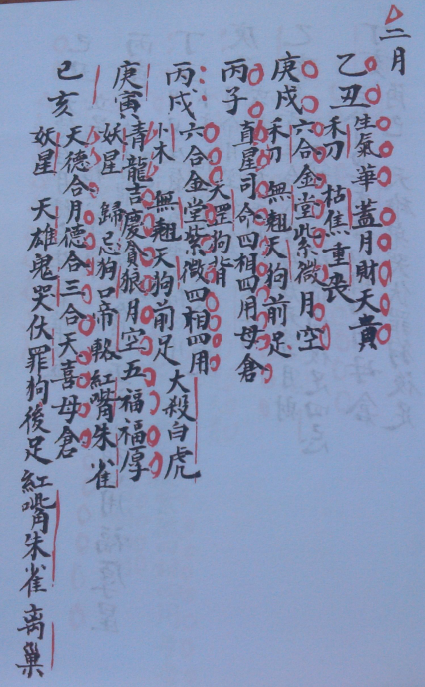 二月
乙丑
生氣華蓋月財天貴
禾刀 枯焦重丧
庚戌
六合金堂紫微月空
禾刀 無翹天狗前足
丙子
直星司命四相四用母倉
天罡狗背
丙戌
六合金堂紫微四相四用
小木 無翹天狗前足 大殺白虎
庚寅
青龍吉慶貪狼月空五福福厚
妖星 歸忌狗口帝輅紅嘴朱雀
己亥
天德合月德合三合天喜母倉
妖星 天雄鬼哭伏罪狗後足紅嘴朱雀离巢